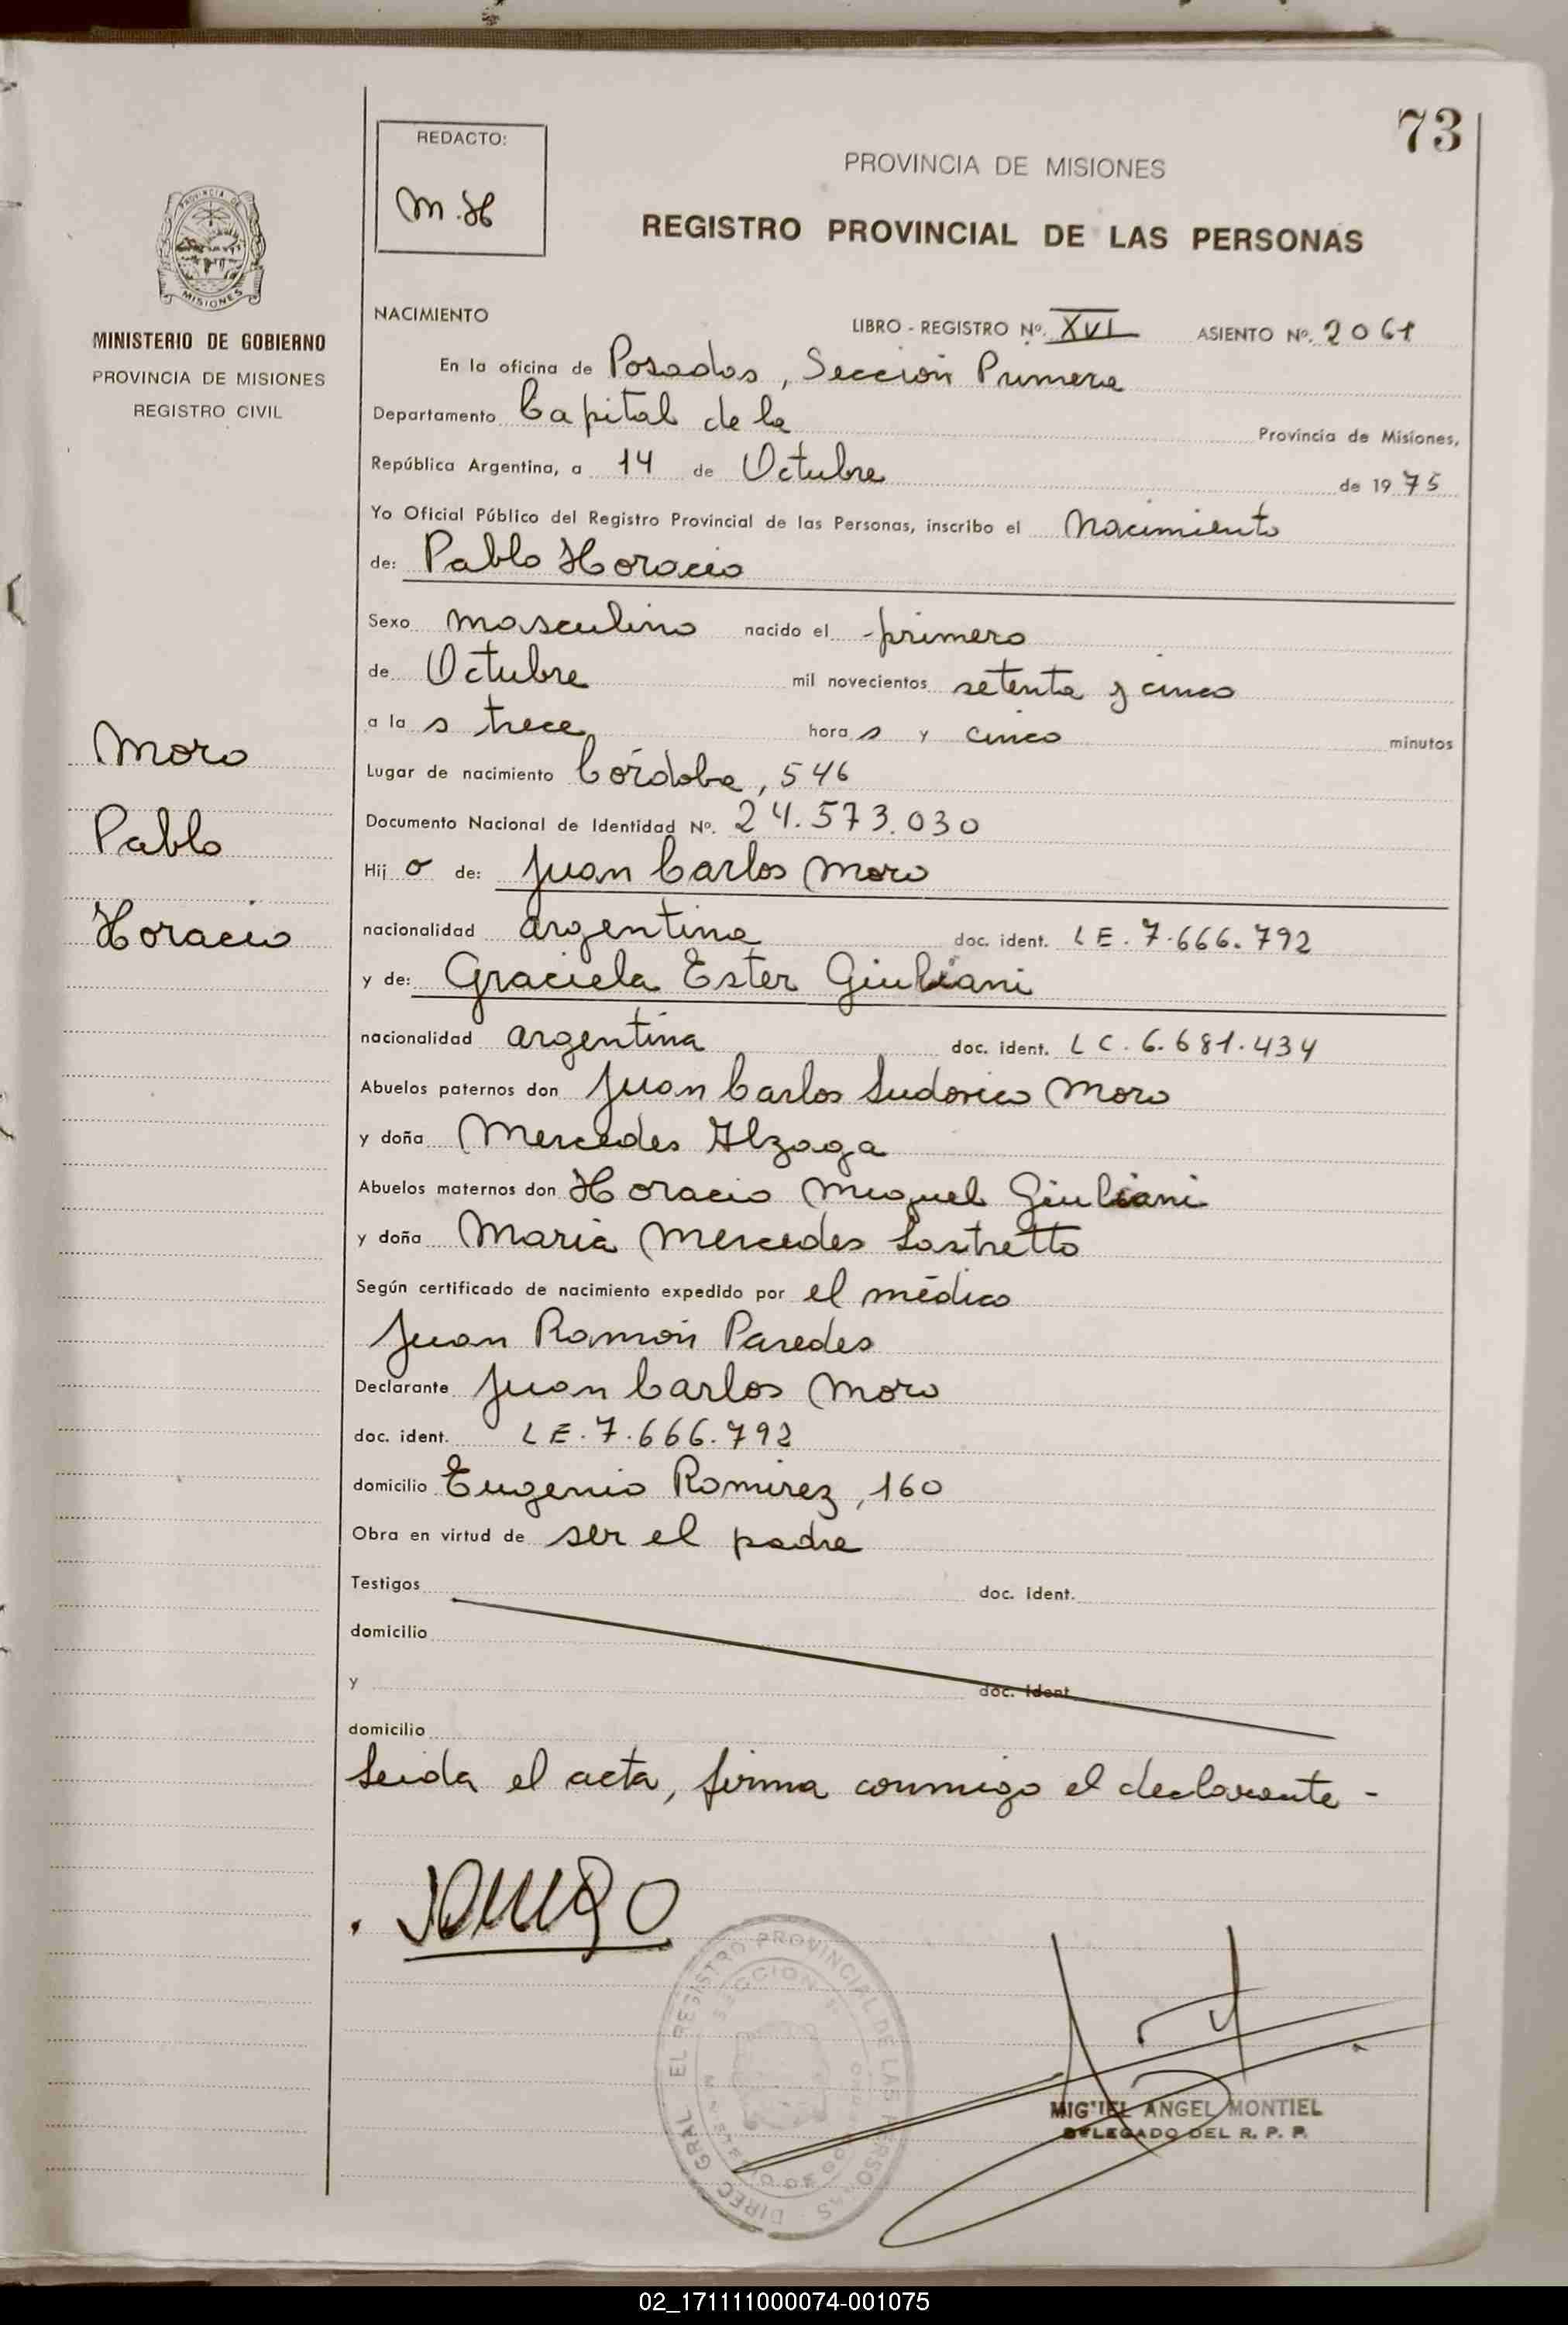 73
REDACTO:
M.H
PROVINCIA DE MISIONES
REGISTRO PROVINCIAL DE LAS PERSONAS
PROVINCIA DE
MISIONES
MINISTERIO DE GOBIERNO
PROVINCIA DE MISIONES
REGISTRO CIVIL
NACIMIENTO LIBRO - REGISTRO Nº. XVI ASIENTO Nº. 2061
En la oficina de Posadas, Sección Primera
Departamento Capital de la Provincia de Misiones,
República Argentina, a 14 de Octubre de 1975
Yo Oficial Público del Registro Provincial de las Personas, inscribo el Nacimiento
de: Pablo Horacio
Sexo masculino nacido el primero
de Octubre mil novecientos setenta y cinco
a las trece horas y cinco minutos
Lugar de nacimiento Córdoba, 546
Documento Nacional de Identidad Nº. 24.573.030
Hijo de: Juan Carlos Moro
nacionalidad argentina doc. ident. LE. 7.666.792
y de: Graciela Ester Giuliani
nacionalidad argentina doc. ident. LC. 6.681.434
Abuelos paternos don Juan Carlos Ludovico Moro
y doña Mercedes Alzaga
Abuelos maternos don Horacio Miguel Giuliani
y doña María Mercedes Lastretto
Según certificado de nacimiento expedido por el médico
Juan Ramón Paredes
Declarante Juan Carlos Moro
doc. ident. LE. 7.666.792
domicilio Eugenio Ramirez, 160
Obra en virtud de ser el padre
Testigos doc. ident.
domicilio
y doc. ident.
domicilio
Leida el acta, firma conmigo el declarante -
Moro
Pablo
Horacio
DIREC GRAL EL REGISTRO PROVINCIAL DE LAS PERSONAS
SECCION 1ª
MINISTERIO DE GOBIERNO
MIGUEL ANGEL MONTIEL
DELEGADO DEL R. P. P.
02_171111000074-001075